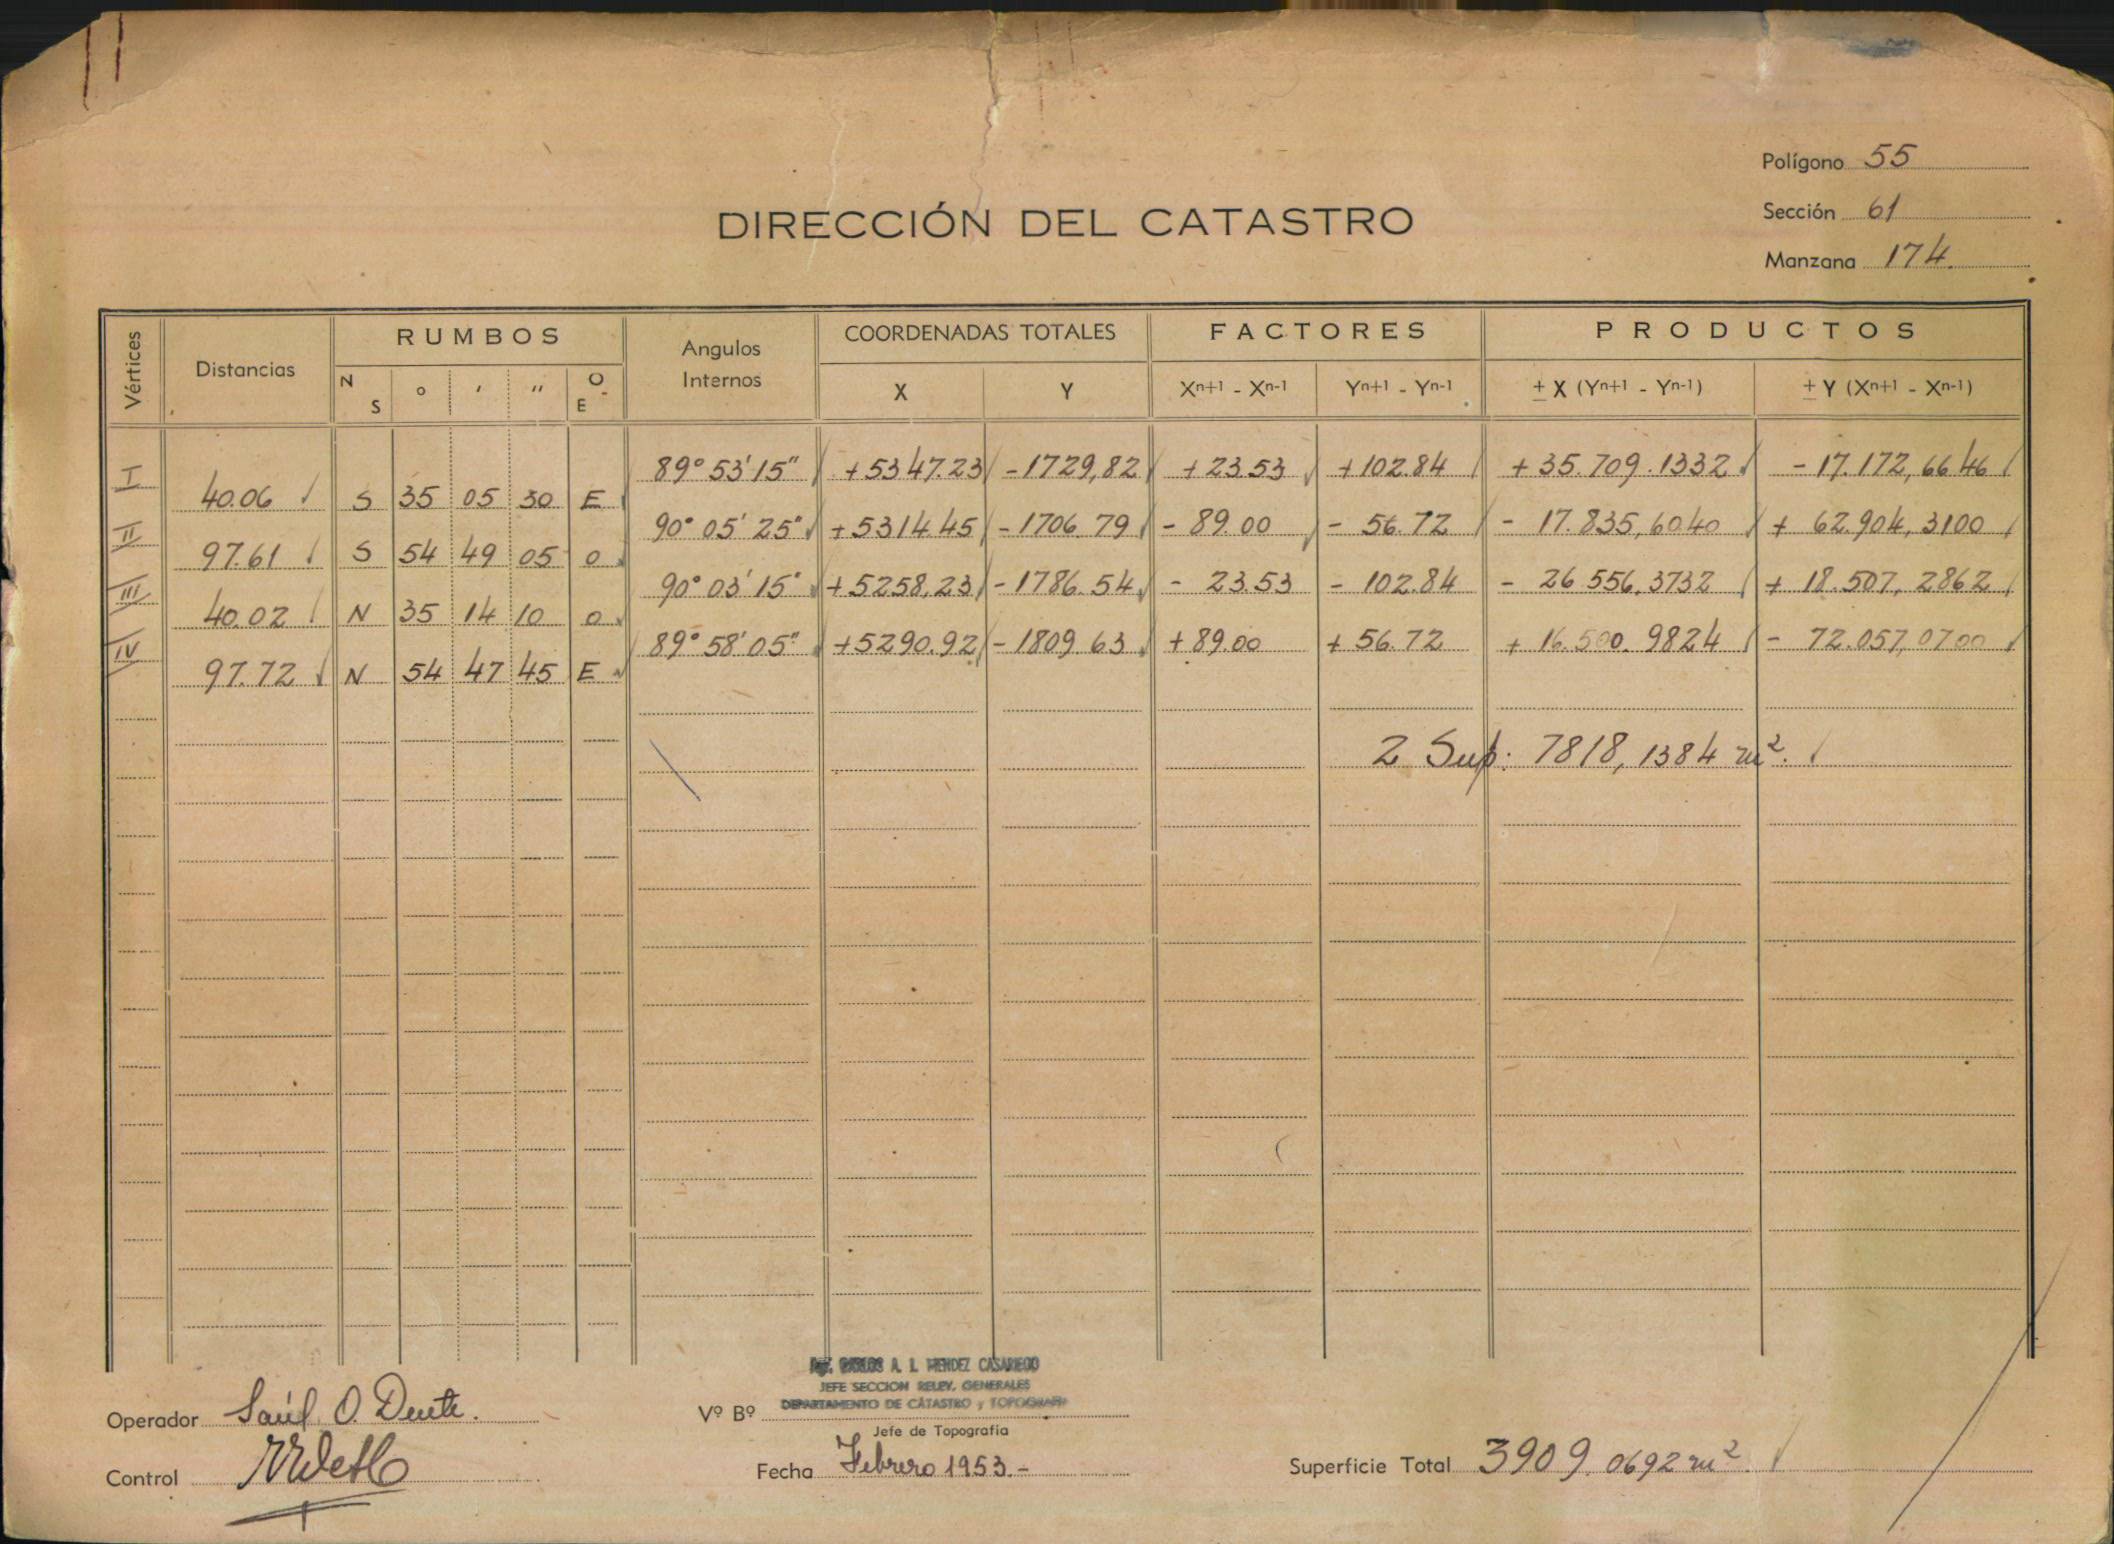 Polígono 55
Sección 61
Manzana 174.
DIRECCIÓN DEL CATASTRO
Vértices Distancias RUMBOS N S ° ' " O E Angulos Internos COORDENADAS TOTALES X Y FACTORES Xn+1 - Xn-1 Yn+1 - Yn-1 PRODUCTOS ± X (Yn+1 - Yn-1) ± Y (Xn+1 - Xn-1)
I 89° 53' 15" +5347.23 -1729,82 +23.53 +102.84 +35.709.1332 -17.172,6646
40.06 S 35 05 30 E
II 90° 05' 25" +5314.45 -1706.79 -89.00 -56.72 -17.835,6040 +62.904,3100
97.61 S 54 49 05 O
III 90° 03' 15" +5258,23 -1786.54 -23.53 -102.84 -26556,3732 +18.507,2862
40.02 N 35 14 10 O
IV 89° 58' 05" +5290.92 -1809.63 +89.00 +56.72 +16.500.9824 -72.057,0700
97.72 N 54 47 45 E
2 Sup: 7818,1384 m².
CARLOS A. L. MENDEZ CASARIEGO
JEFE SECCION RELEV. GENERALES
DEPARTAMENTO DE CATASTRO y TOPOGRAFIA
Operador Saúl O. Dente.
Vº Bº
Jefe de Topografía
Control
Fecha Febrero 1953.-
Superficie Total 3909.0692 m².